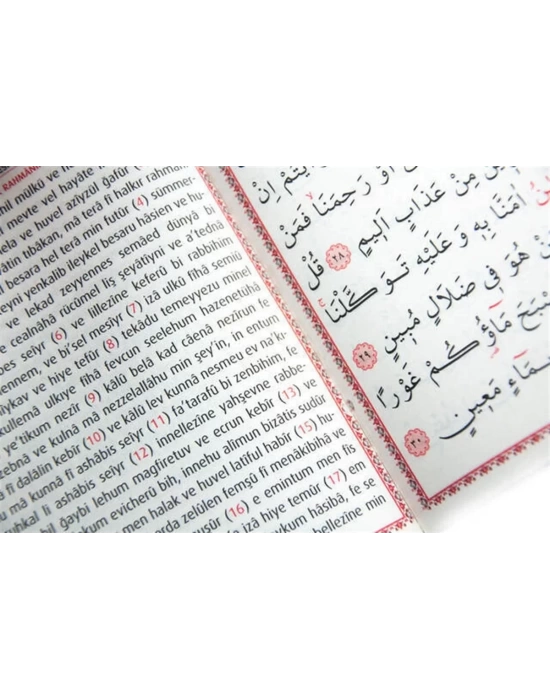 RAHMAN
mülkü ve
meyte vel hayâte
ve huvel azîyzül gafûr
tıbâkan, mâ terâ fî halkır rahmân
besara hel terâ min futûr (4) sümmer-
yenkalib ileykel besaru hâsien ve hu-
lekad zeyyennes semâed dünyâ bi
cealnâhâ rücûmel liş şeyâtîyni ve a'tednâ
seîyr (6) ve lillezîne keferû bi rabbihim
ve bi'sel mesîyr (7) izâ ulkû fîhâ semiû
ve hiye tefûr (8) tekâdü temeyyezü minel
ulkıye fîhâ fevcun seelehum hazenetühâ
e'tikum nezîr (9) kâlû belâ kad câenâ nezîrun fe
ve kulnâ mâ nezzelallâhu min şey'in, in entum
fî dalâlin kebîr (10) ve kâlû lev kunnâ nesmeu ev na'k-
mâ kunnâ fî ashâbis seîyr (11) fa'tarafû bi zenbihim, fe
li ashâbis seîyr (12) innellezîne yahşevne rabbe-
ğaybi lehum magfiretuv ve ecrun kebîr (13) ve
evicherû bih, innehu alîmun bizâtis sudûr
men halak ve huvel latîful habîr (15) hu-
zelûlen femşû fî menâkibihâ ve
(16) e emintum men fis
izâ hiye temûr (17) em
hâsibâ, fe se
min
اِنْ
اَوْ رَحِمَنَاۙ فَمَنْ
مِنْ عَذَابٍ اَلٖيمٍ ﴿٢٨﴾ قُلْ
اٰمَنَّا بِهٖ وَعَلَيْهِ تَوَكَّلْنَاۚ
هُوَ فٖي ضَلَالٍ مُبٖينٍ ﴿٢٩﴾
مَٓاؤُ۬كُمْ غَوْرًا
مَعٖينٍ ﴿٣٠﴾